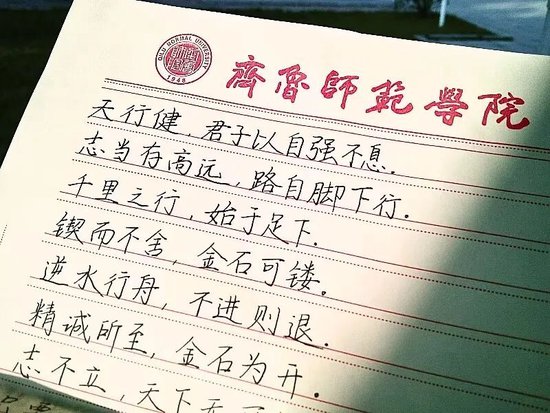 QILU NORMAL UNIVERSITY
1948
齊魯師範學院
天行健，君子以自强不息.
志当有高远，路自脚下行.
千里之行，始于足下.
锲而不舍，金石可镂.
逆水行舟，不进则退.
精诚所至，金石为开.
志不立，天下无可